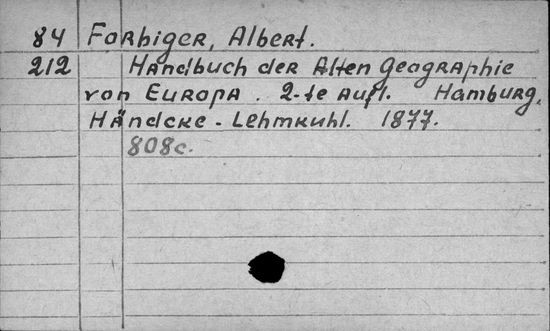 84 Forbiger, Albert.
212 Handbuch der Alten Geographie
von Europa. 2-te Aufl. Hamburg,
Händcke - Lehmkuhl. 1877.
808c.